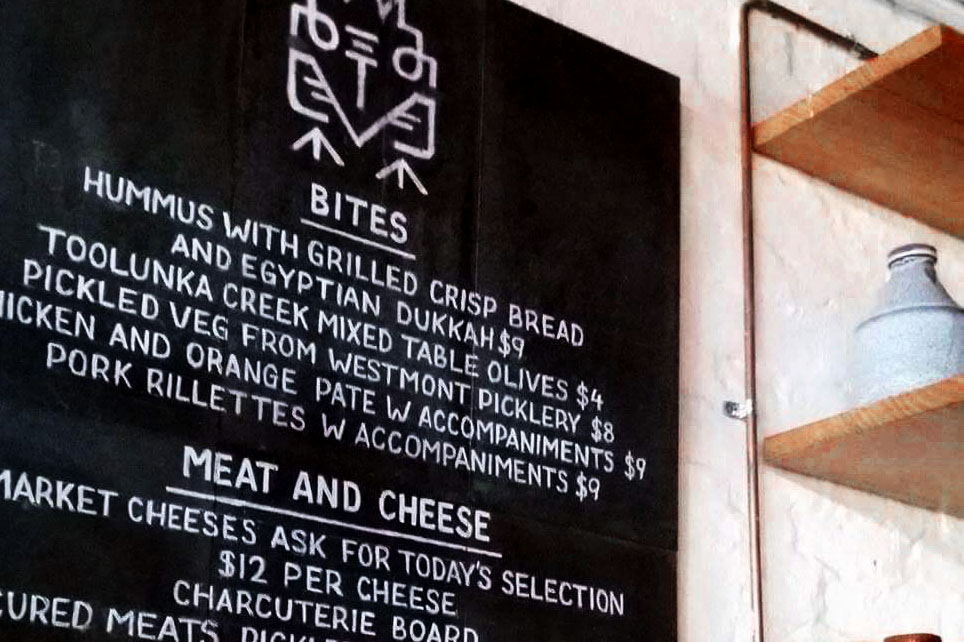 BITES
HUMMUS WITH GRILLED CRISP BREAD
AND EGYPTIAN DUKKAH $9
TOOLUNKA CREEK MIXED TABLE OLIVES $4
PICKLED VEG FROM WESTMONT PICKLERY $8
HICKEN AND ORANGE PATE W ACCOMPANIMENTS $9
PORK RILLETTES W ACCOMPANIMENTS $9
MEAT AND CHEESE
MARKET CHEESES ASK FOR TODAY'S SELECTION
$12 PER CHEESE
CHARCUTERIE BOARD
CURED MEATS,